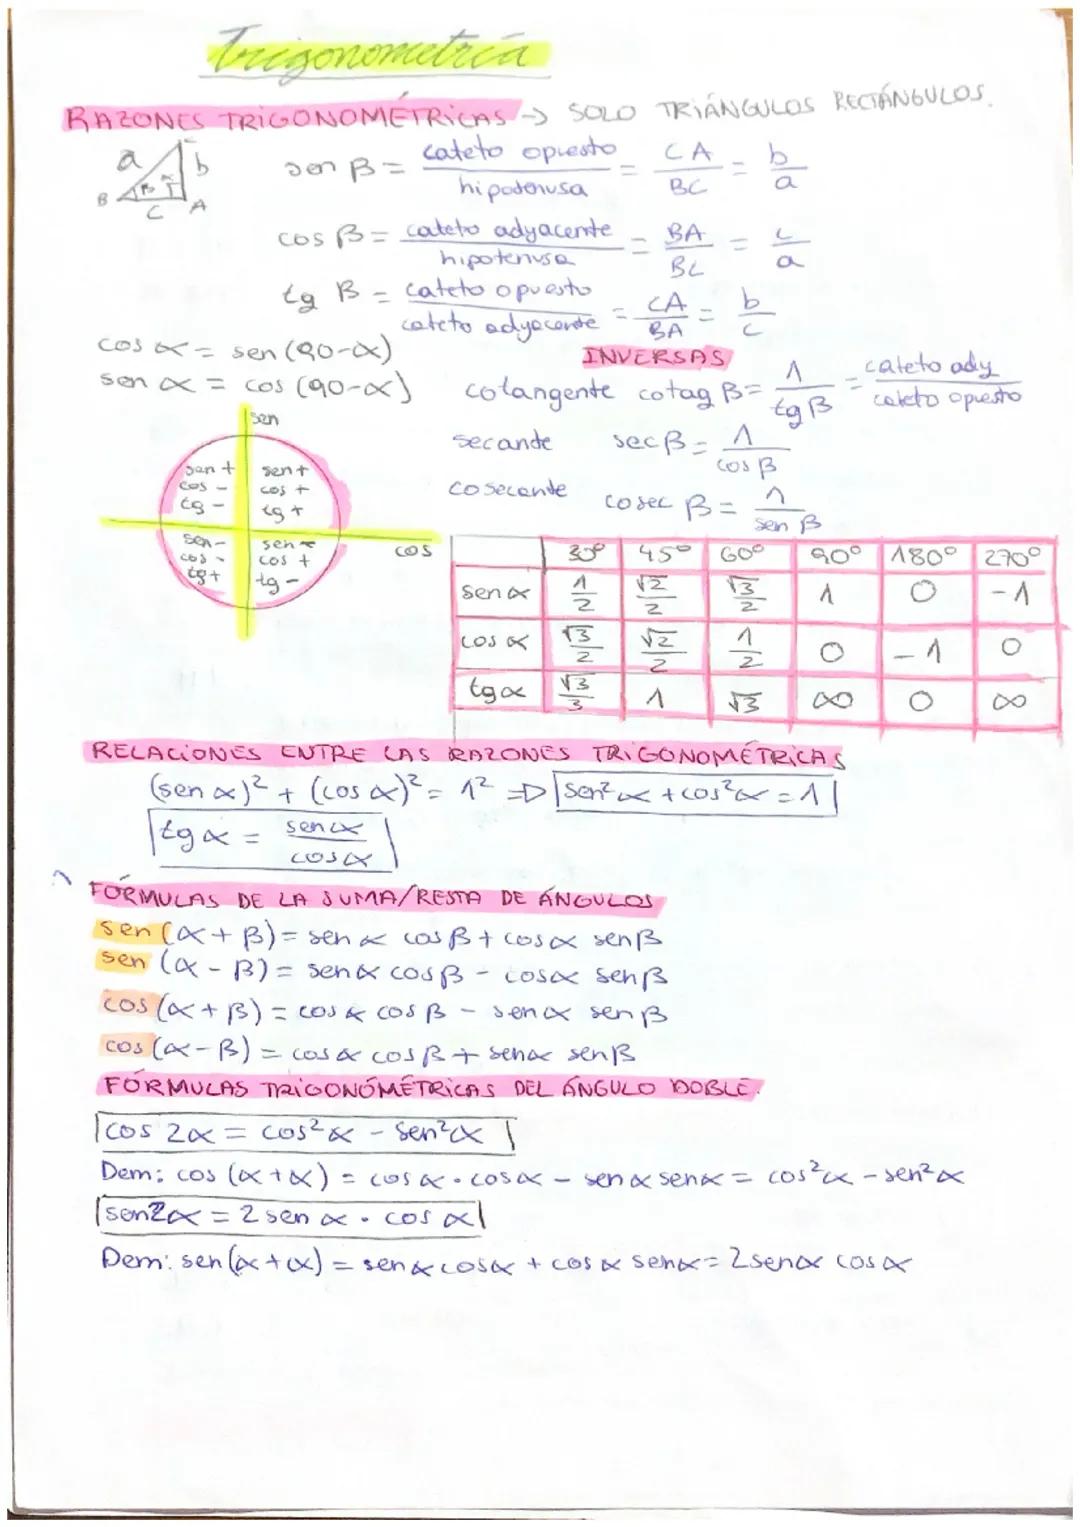 Trigonometría
RAZONES TRIGONOMÉTRICAS → SOLO TRIÁNGULOS RECTÁNGULOS.
a b c A B C β α
sen β = cateto opuesto / hipotenusa = CA / BC = b / a
cos β = cateto adyacente / hipotenusa = BA / BC = c / a
tg β = cateto opuesto / cateto adyacente = CA / BA = b / c
cos α = sen (90-α)
sen α = cos (90-α)
INVERSAS
cotangente cotag β = 1 / tg β = cateto ady / cateto opuesto
secante sec β = 1 / cos β
cosecante cosec β = 1 / sen β
sen
sen + sen +
cos - cos +
tg - tg +
sen - sen -
cos - cos +
tg + tg -
cos
30º 45º 60º 90º 180º 270º
sen α 1/2 √2/2 √3/2 1 0 -1
cos α √3/2 √2/2 1/2 0 -1 0
tg α √3/3 1 √3 ∞ 0 ∞
RELACIONES ENTRE LAS RAZONES TRIGONOMÉTRICAS
(sen α)² + (cos α)² = 1² ⇒ sen²α + cos²α = 1
tg α = sen α / cos α
FÓRMULAS DE LA SUMA/RESTA DE ÁNGULOS
sen (α + β) = sen α cos β + cos α sen β
sen (α - β) = sen α cos β - cos α sen β
cos (α + β) = cos α cos β - sen α sen β
cos (α - β) = cos α cos β + sen α sen β
FÓRMULAS TRIGONÓMÉTRICAS DEL ÁNGULO DOBLE.
cos 2α = cos²α - sen²α
Dem: cos (α + α) = cos α · cos α - sen α sen α = cos²α - sen²α
sen 2α = 2 sen α · cos α
Dem: sen (α + α) = sen α cos α + cos α sen α = 2 sen α cos α